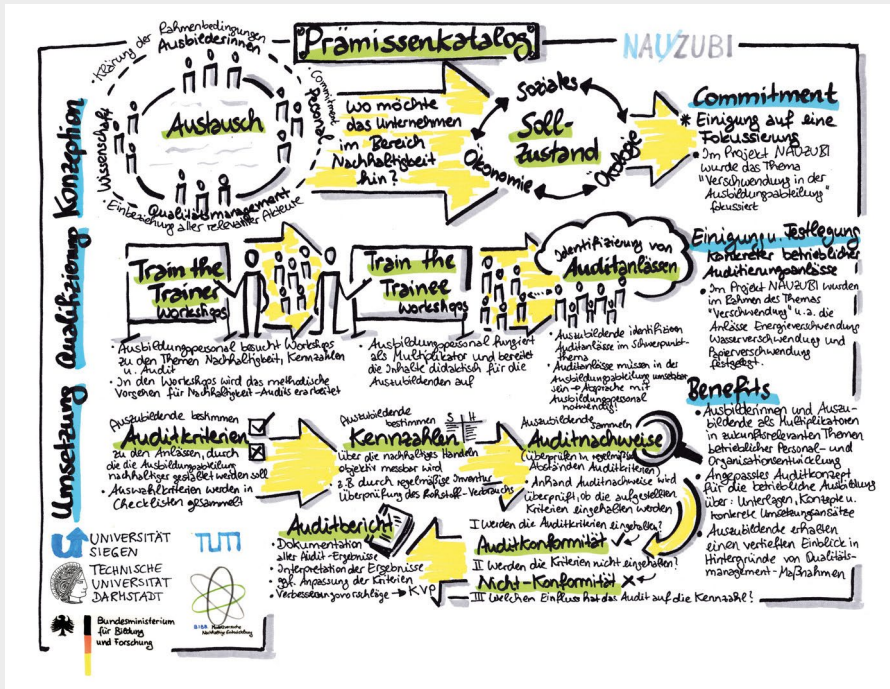 Prämissenkatalog
NAUZUBI
Konzeption
Qualifizierung
Umsetzung
• Klärung der Rahmenbedingungen
Ausbilderinnen
Commitment
Personal
Wissenschaft
Austausch
Qualitätsmanagement
• Einbeziehung aller relevanter Akteure
Wo möchte
das Unternehmen
im Bereich
Nachhaltigkeit
hin?
Soziales
Soll-
zustand
Ökonomie
Ökologie
Commitment
* Einigung auf eine
Fokussierung
• Im Projekt NAUZUBI
wurde das Thema
"Verschwendung in der
Ausbildungsabteilung"
fokussiert
Train the
Trainer
Workshops
Train the
Trainee
Workshops
Identifizierung von
Auditanlässen
• Ausbildungspersonal besucht Workshops
zu den Themen Nachhaltigkeit, Kennzahlen
u. Audit
• In den Workshops wird das methodische
Vorgehen für Nachhaltigkeit-Audits erarbeitet
• Ausbildungspersonal fungiert
als Multiplikator und bereitet
die Inhalte didaktisch für die
Auszubildenden auf
• Auszubildende identifizieren
Auditanlässe im Schwerpunkt-
thema
• Auditanlässe müssen in der
Ausbildungsabteilung umsetzbar
sein → Absprache mit
Ausbildungspersonal
notwendig!
Einigung u. Festlegung
konkreter betrieblicher
Auditierungsanlässe
• Im Projekt NAUZUBI wurden
im Rahmen des Themas
"Verschwendung" u.a. die
Anlässe Energieverschwendung
Wasserverschwendung und
Papierverschwendung
festgelegt.
Auszubildende bestimmen
Auditkriterien
zu den Anlässen, durch
die die Ausbildungsabteilung
nachhaltiger gestaltet werden soll
• Auswahlkriterien werden in
Checklisten gesammelt
Auszubildende
bestimmen
S I H
Kennzahlen
über die nachhaltiges Handeln
objektiv messbar wird
• z.B. durch regelmäßige Inventur
Überprüfung des Rohstoff-Verbrauchs
Auszubildende
sammeln
Auditnachweise
(überprüfen in regelmäßigen
Abständen Auditkriterien)
• Anhand Auditnachweise wird
überprüft, ob die aufgestellten
Kriterien eingehalten werden
I Werden die Auditkriterien eingehalten?
Auditkonformität
II Werden die Kriterien nicht eingehalten?
Nicht-Konformität
III Welchen Einfluss hat das Audit auf die Kennzahl?
Auditbericht
• Dokumentation
aller Audit-Ergebnisse
• Interpretation der Ergebnisse
ggf. Anpassung der Kriterien
• Verbesserungsvorschläge → KVP
Benefits
• Ausbilderinnen und Auszu-
bildende als Multiplikatoren
in zukunftsrelevanten Themen
betrieblicher Personal- und
Organisationsentwicklung
• Angepasstes Auditkonzept
für die betriebliche Ausbildung
über: Unterlagen, Konzepte u.
konkrete Umsetzungsansätze
• Auszubildende erhalten
einen vertieften Einblick in
Hintergründe von Qualitäts-
management-Maßnahmen
UNIVERSITÄT
SIEGEN
TUM
TECHNISCHE
UNIVERSITÄT
DARMSTADT
BIBB
Nachhaltige Entwicklung
Bundesministerium
für Bildung
und Forschung